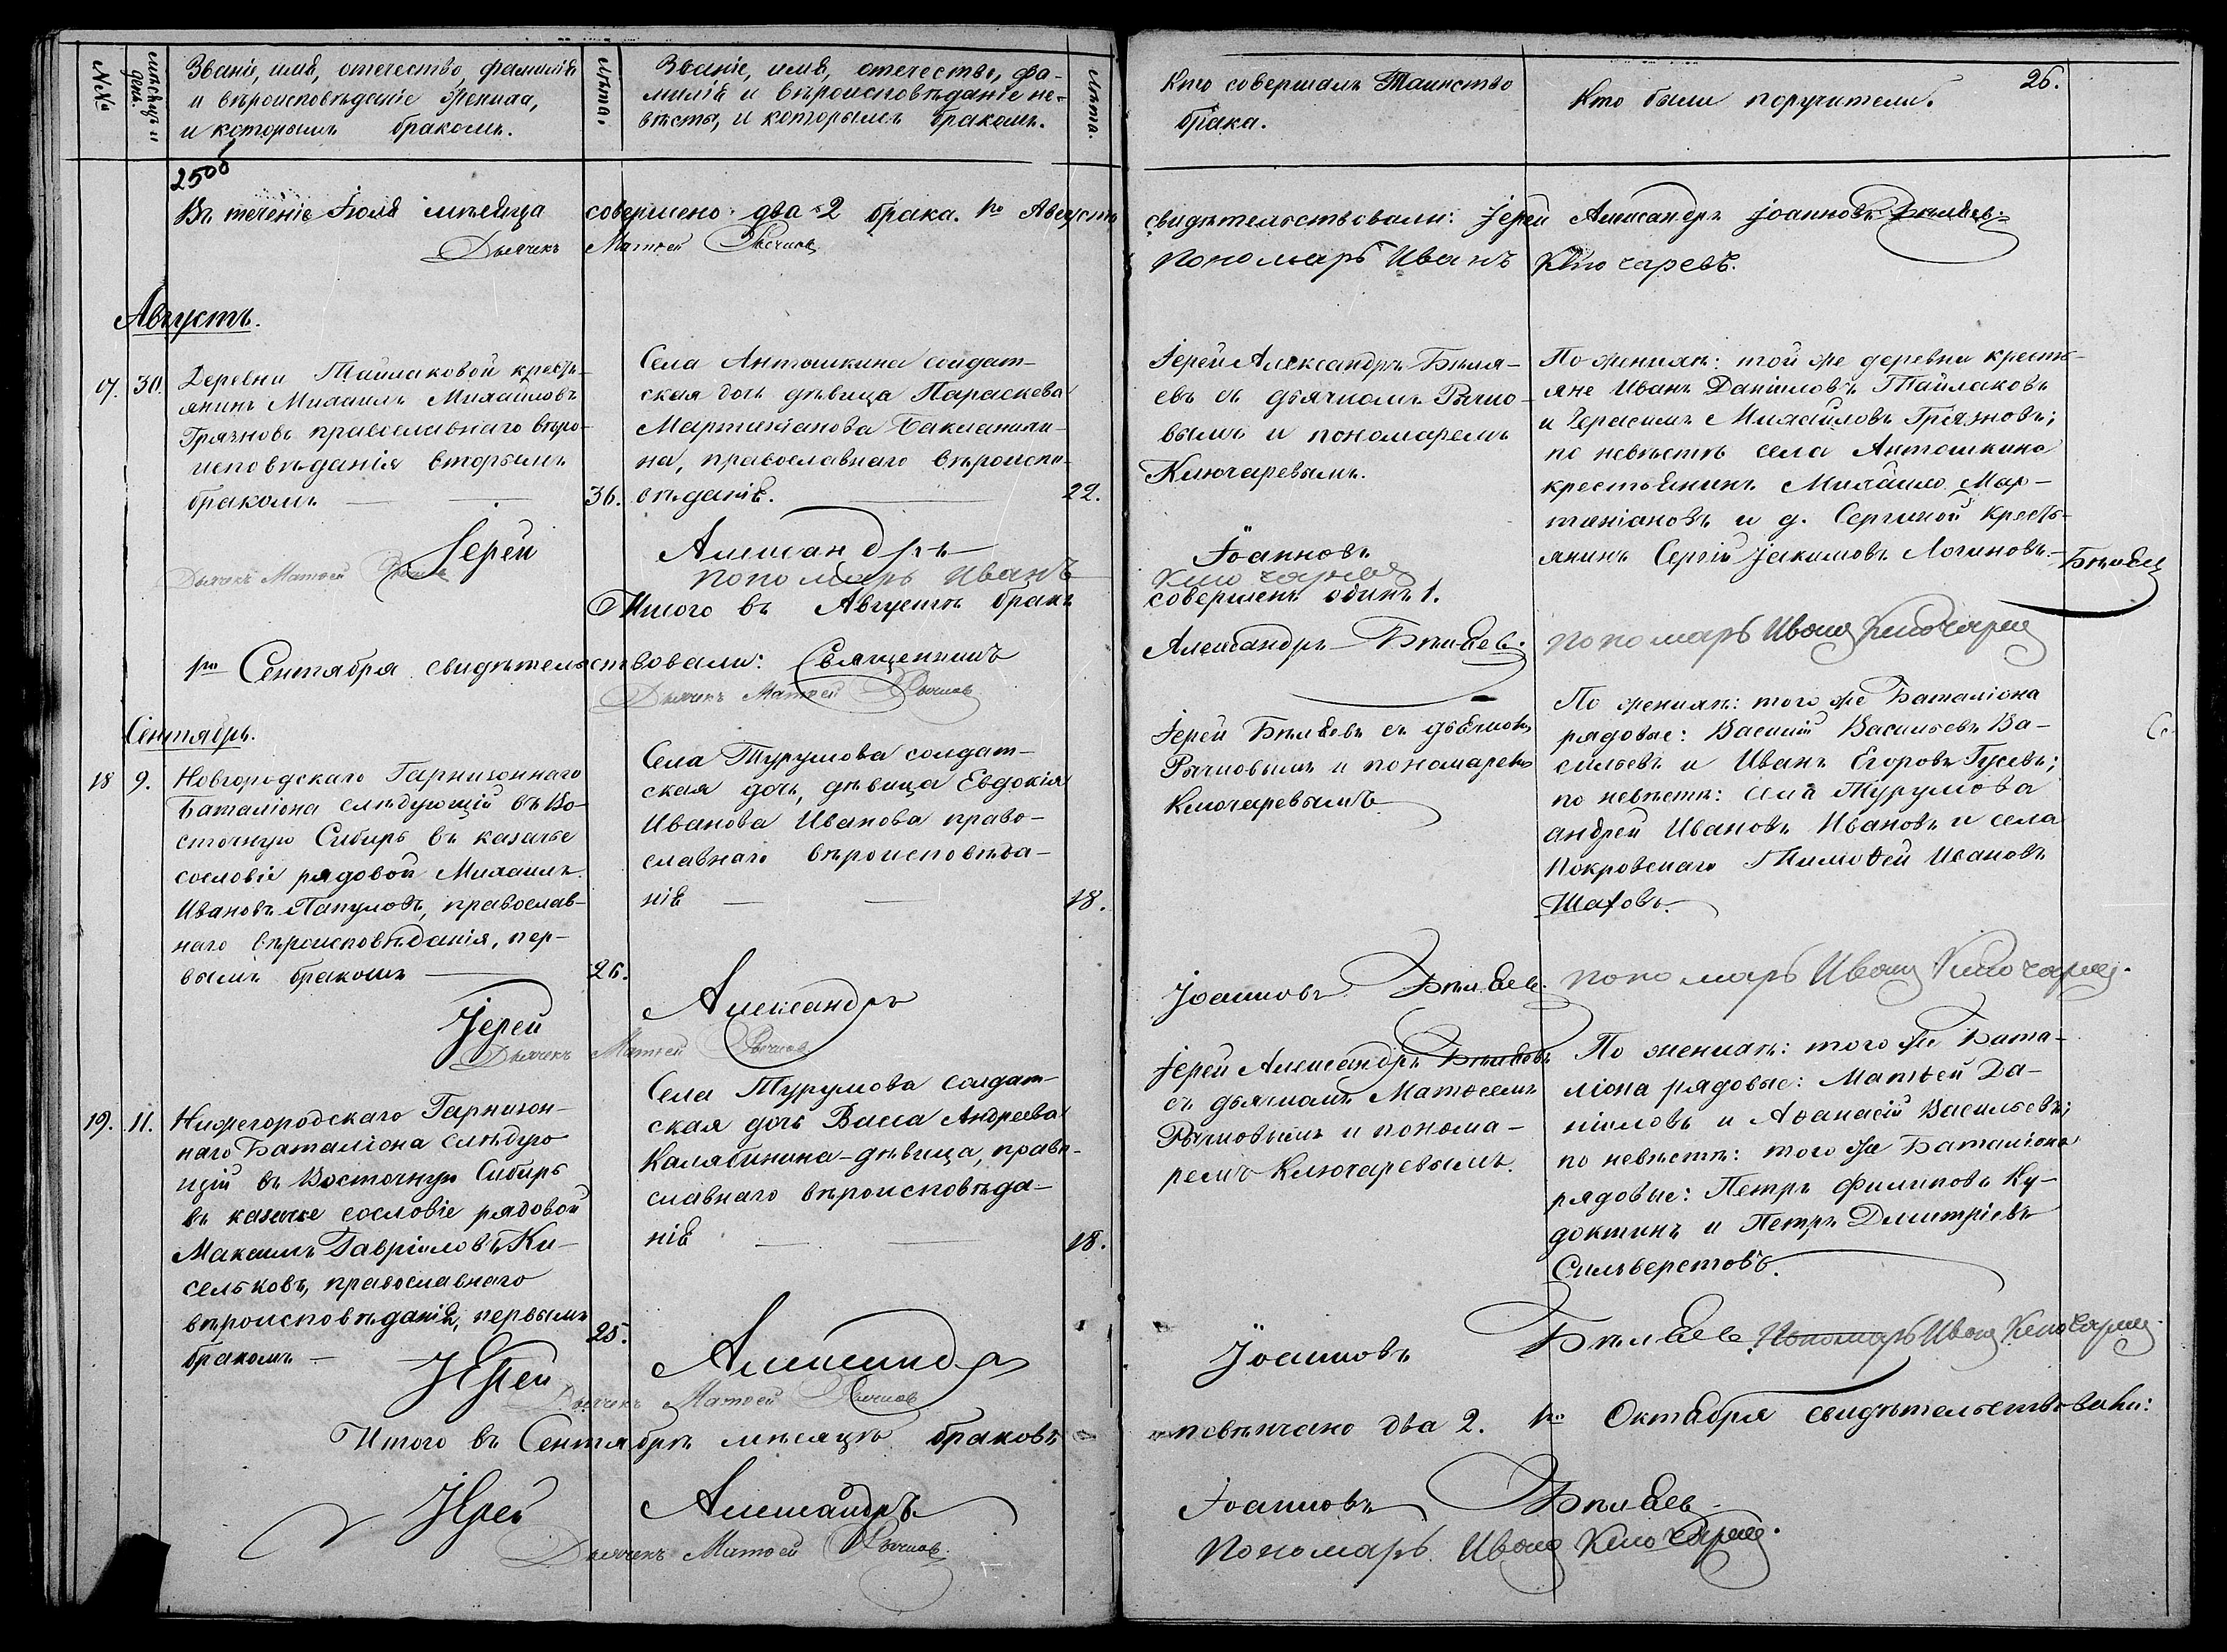 №№
мѣсяцъ и день.
Званіе, имя, отечество, фамилія
и вѣроисповѣданіе жениха,
и которымъ бракомъ.
Лѣта.
Званіе, имя, отечество, фа-
милія и вѣроисповѣданіе не-
вѣсты, и которымъ бракомъ.
Лѣта.
Кто совершалъ Таинство
брака.
Кто были поручители.
26.
Въ теченіе Іюля мѣсяца совершено два 2 брака. 1го Августа свидѣтельствовали: Іерей Александръ Іоанновъ Бѣляевъ
Дьячекъ Матѳей Рычковъ Пономарь Иванъ Ключаревъ.
Августъ.
17. 30.
Деревни Тайлаковой кресть-
янинъ Михаилъ Михайловъ
Грязновъ православнаго вѣро-
исповѣданія вторымъ
бракомъ
36.
Села Антошкина солдат-
ская дочь дѣвица Параскева
Мартиніанова Бакланихи-
на, православнаго вѣроиспо-
вѣданія.
22.
Іерей Александръ Бѣля-
евъ съ дьячкомъ Рычко-
вымъ и пономаремъ
Ключаревымъ.
По женихѣ: той же деревни кресть-
яне Иванъ Даніиловъ Тайлаковъ
и Герасимъ Михайловъ Грязновъ;
по невѣстѣ села Антошкина
крестьянинъ Михайло Мар-
тиніановъ и д. Сергиной кресть-
янинъ Сергій Іакимовъ Логиновъ.
Іерей Александръ Іоанновъ Бѣляевъ
Дьячекъ Матѳей Рычковъ пономарь Иванъ Ключаревъ
Итого въ Августѣ бракъ совершенъ одинъ 1.
1го Сентября свидѣтельствовали: Священникъ Александръ Бѣляевъ. пономарь Иванъ Ключаревъ
Дьячекъ Матѳей Рычковъ
Сентябрь.
18 9.
Новгородскаго Гарнизоннаго
Баталіона слѣдующій въ Во-
сточную Сибирь въ казачье
сословіе рядовой Михаилъ
Ивановъ Папуловъ, православ-
наго вѣроисповѣданія, пер-
вымъ бракомъ
26.
Села Турумова солдат-
ская дочь, дѣвица Евдокія
Иванова Иванова право-
славнаго вѣроисповѣда-
нія
18.
Іерей Бѣляевъ съ дьячкомъ
Рычковымъ и пономаремъ
Ключаревымъ
По женихѣ: того же Баталіона
рядовые: Василій Васильевъ Ва-
сильевъ и Иванъ Егоровъ Гусевъ;
по невѣстѣ: села Турумова
Андрей Ивановъ Ивановъ и села
Покровскаго Тимоѳей Ивановъ
Шаховъ.
Іерей Александръ Іоанновъ Бѣляевъ. пономарь Иванъ Ключаревъ.
Дьячекъ Матѳей Рычковъ
19. 11.
Нижегородскаго Гарнизон-
наго Баталіона слѣдую
щій въ Восточную Сибирь
въ казачье сословіе рядовой
Максимъ Гавріиловъ Ки-
сельковъ, православнаго
вѣроисповѣданія, первымъ
бракомъ
25.
Села Турумова солдат-
ская дочь Васса Андреева
Калябинина-дѣвица, право-
славнаго вѣроисповѣда-
нія
18.
Іерей Александръ Бѣляевъ
съ дьячкомъ Матѳеемъ
Рычковымъ и понома-
ремъ Ключаревымъ.
По женихѣ: того же Бата-
ліона рядовые: Матвей Да-
ніиловъ и Аѳанасій Васильевъ;
по невѣстѣ: того же Баталіона
рядовые: Петръ Филиповъ Ку-
доктинъ и Петръ Дмитріевъ
Сильверстовъ.
Іерей Александръ Іоанновъ Бѣляевъ Пономарь Иванъ Ключаревъ
Дьячекъ Матѳей Рычковъ
Итого въ Сентябрѣ мѣсяцѣ браковъ повѣнчано два 2. 1го Октября свидѣтельствовали:
Іерей Александръ Іоанновъ Бѣляевъ
Дьячекъ Матѳей Рычковъ. Пономарь Иванъ Ключаревъ.